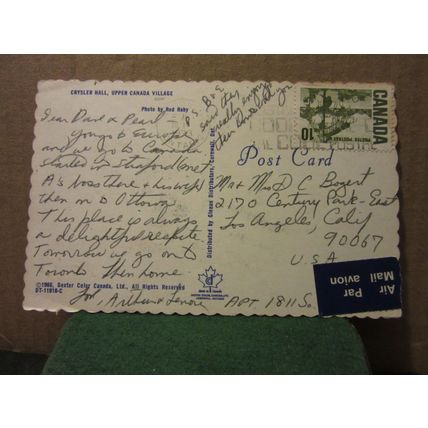 CRYSLER HALL, UPPER CANADA VILLAGE
Photo by Rod Haby
Dear Dave & Pearl
go to Europe
and we go to Canada
started in Stratford (met
A's boss there & his wife
then on to Ottawa
This place is always
a delightful respite
Tomorrow we go on to
Toronto then home
Love, Arthur & Lenore
P.S. B & E
said they
really enjoyed
CANADA
10
POSTES POSTAGE
Distributed by Glenns Distributors, Cornwall, Ont.
Post Card
Mr & Mrs D C Bogert
2170 Century Park-East
Los Angeles, Calif
90067
U.S.A
APT 1811 S.
Par avion
Air Mail
©1968, Dexter Color Canada, Ltd. All Rights Reserved
DT-11918-C